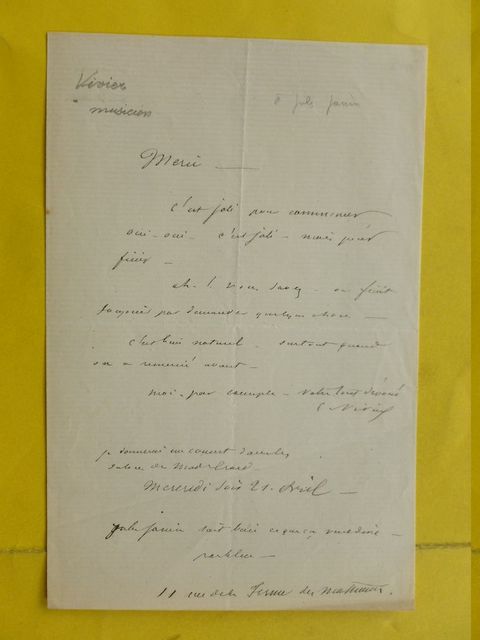 Vivier
musicien
à Jules Janin
Merci —
c'est joli pour commencer
oui - oui - c'est joli - mais pour
finir -
ah ! vous savez - on finit
toujours par demander quelque chose -
c'est bien naturel - surtout quand
on a remercié avant -
moi - par exemple - votre tout dévoué
E Vivier
je donnerai un concert dans les
salons de Mad. Erard -
Mercredi soir 21 Avril -
Jules Janin sait bien ce que ça veut dire -
parbleu -
11 rue de la Ferme des Mathurins.